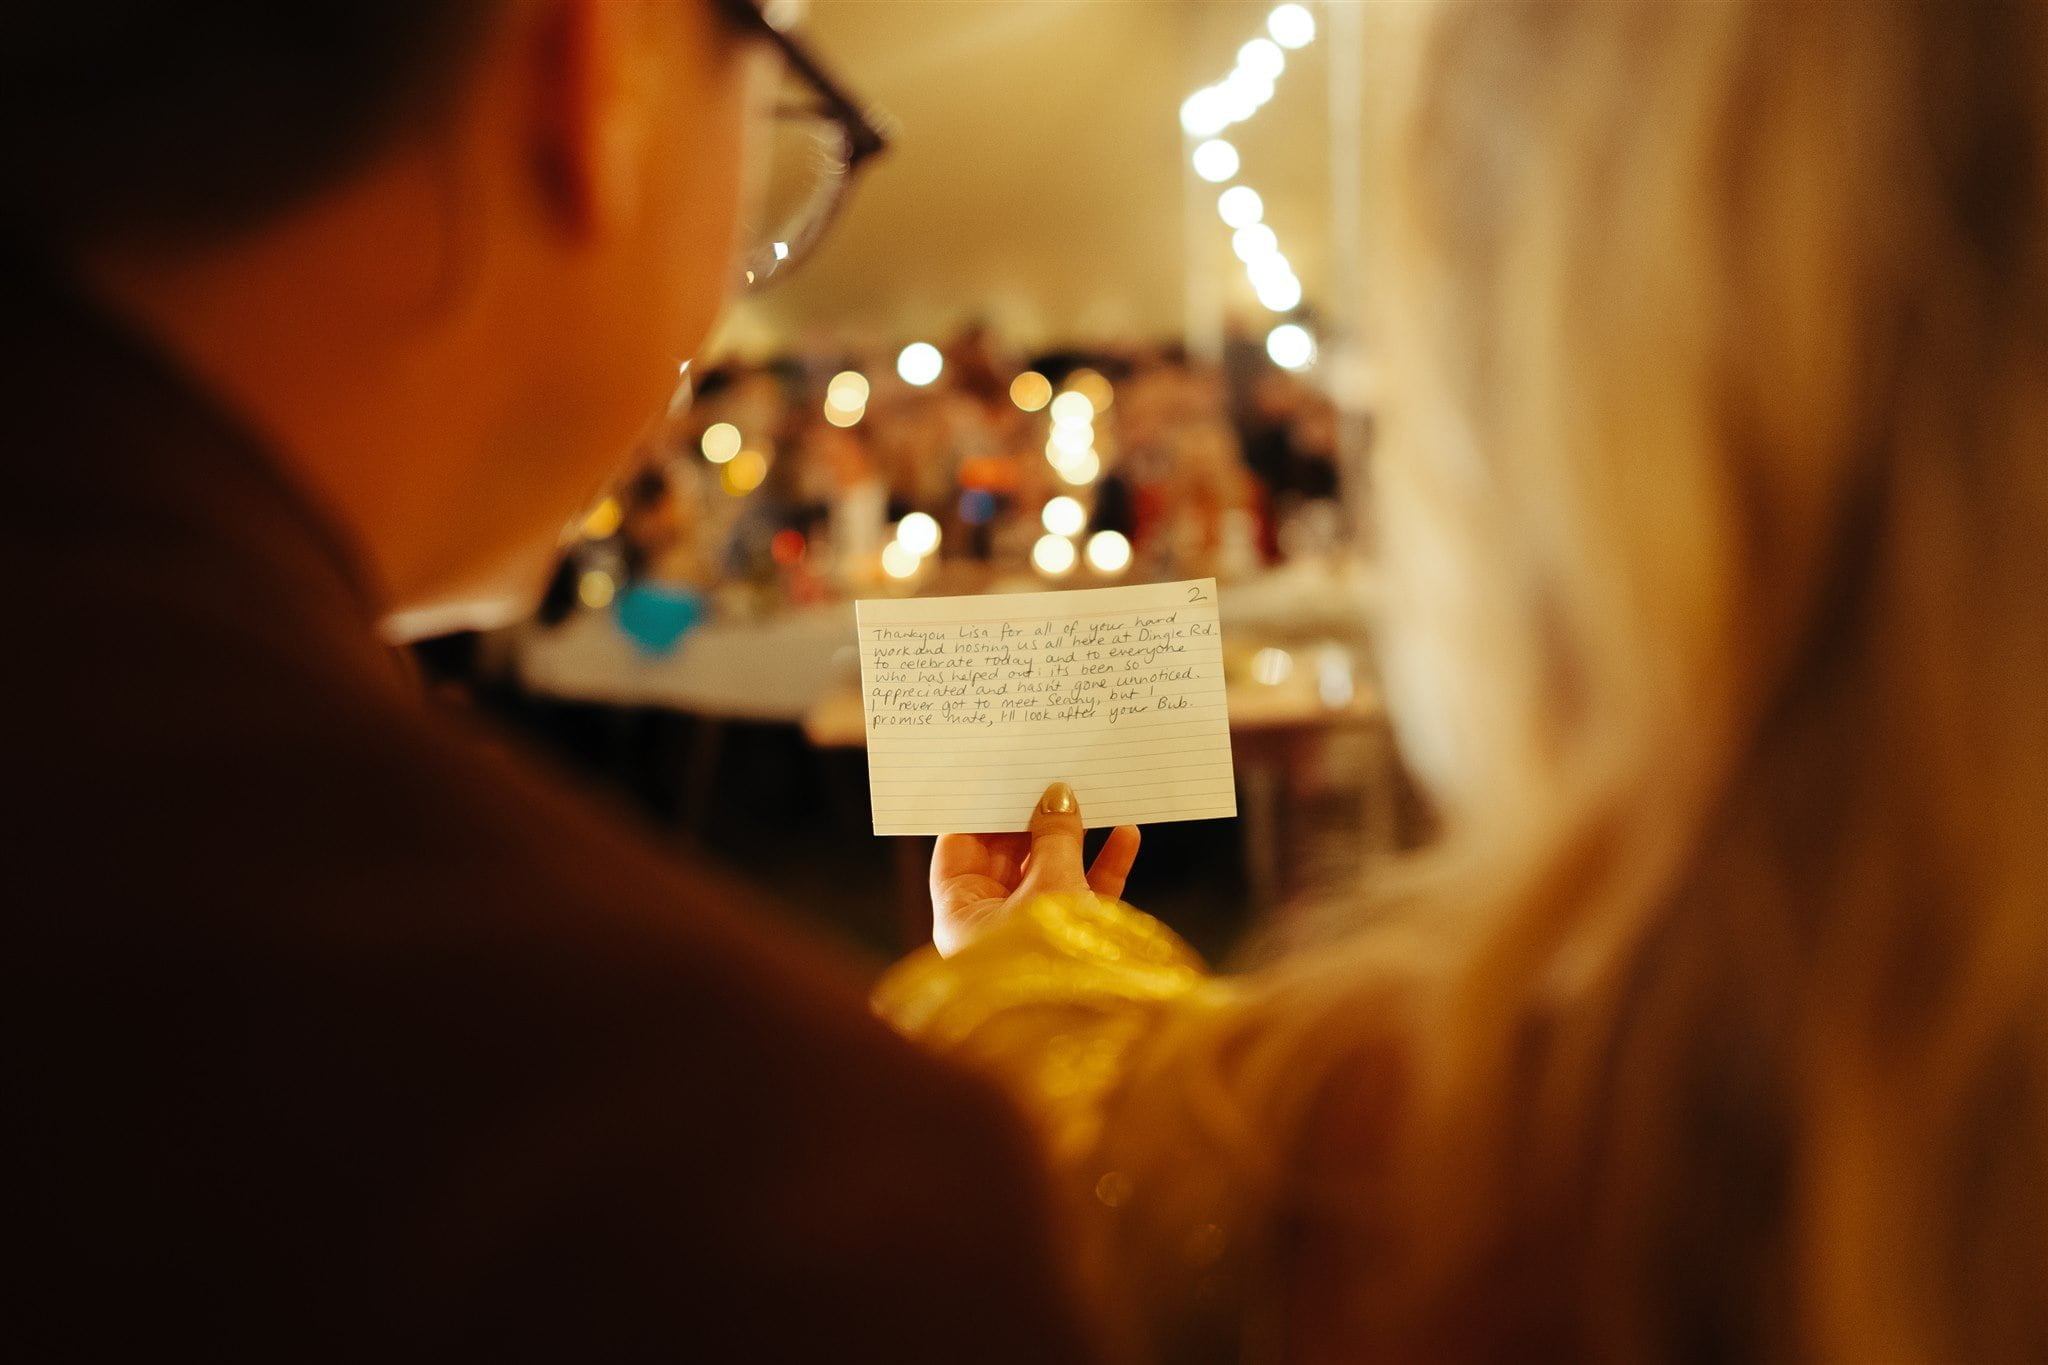 2
Thankyou Lisa for all of your hard
work and hosting us all here at Dingle Rd.
to celebrate today and to everyone
who has helped out; its been so
appreciated and hasn't gone unnoticed.
I never got to meet Seany, but I
promise mate, I'll look after your Bub.